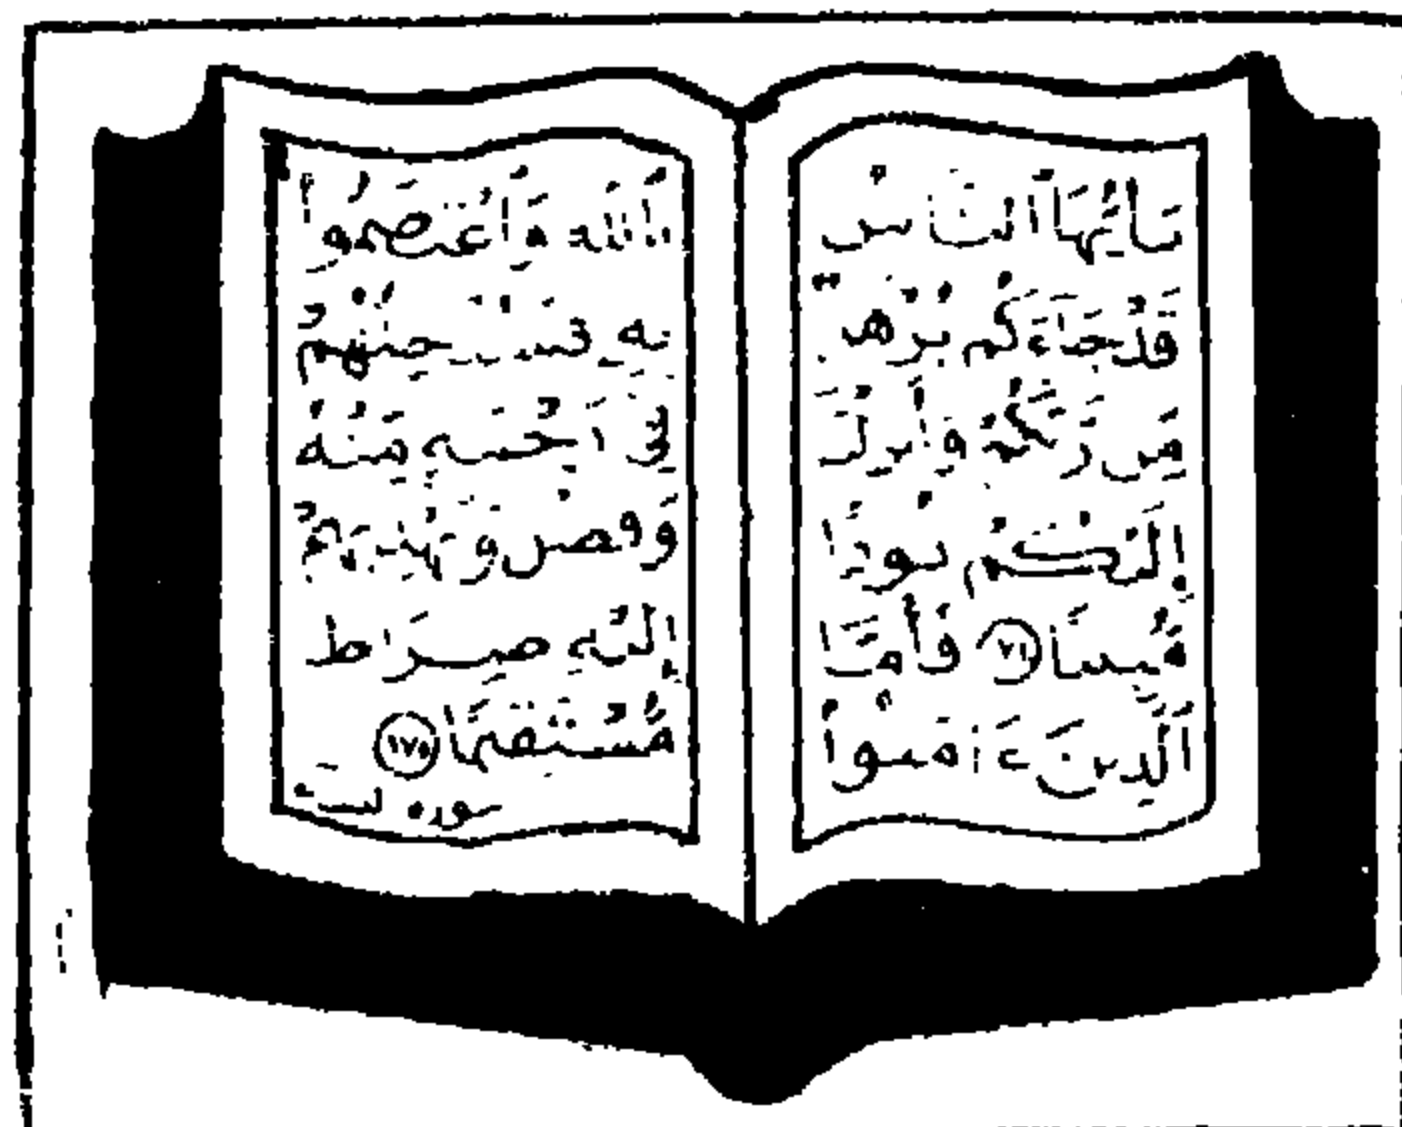 يَـأَيُّهَا ٱلنَّاسُ
قَدْ جَآءَكُم بُرْهَـ
مِّن رَّبِّكُمْ وَأَنزَلْنَـ
إِلَيْكُمْ نُورًا
مُّبِينًا ١٧٤ فَأَمَّا
ٱلَّذِينَ ءَامَنُوا۟
بِٱللَّهِ وَٱعْتَصَمُوا۟
بِهِ فَسَيُدْخِلُهُمْ
فِى رَحْمَةٍ مِّنْهُ
وَفَضْلٍ وَيَهْدِيهِمْ
إِلَيْهِ صِرَاط
مُّسْتَقِيمًا ١٧٥
سورة النساء